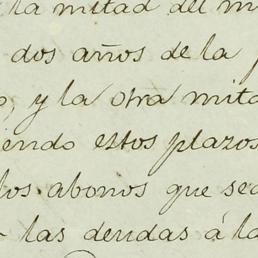 la mitad del m
dos años de la p
o, y la otra mita
iendo estos plazos
los abonos que sea
las deudas á la